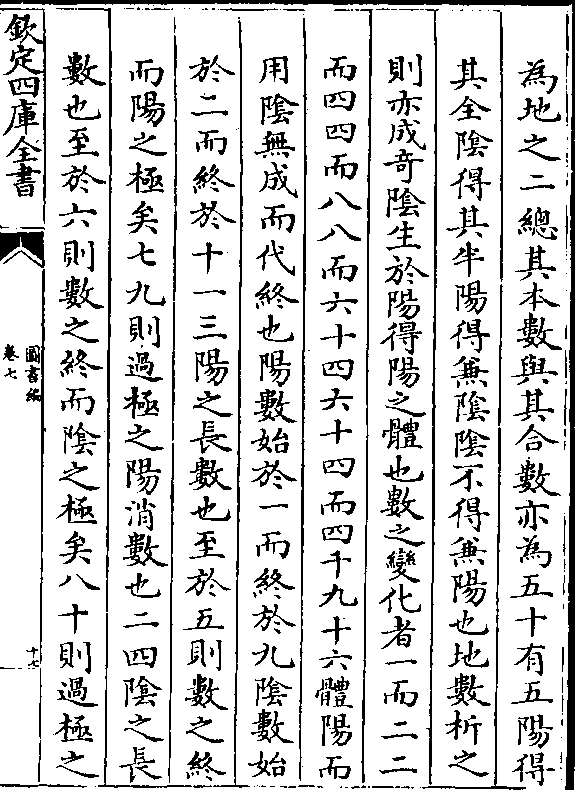 為地之二總其本數與其合數亦為五十有五陽得
其全陰得其半陽得兼陰陰不得兼陽也地數析之
則亦成竒陰生於陽得陽之體也數之變化者一而二二
而四四而八八而六十四六十四而四千九十六體陽而
用陰無成而代終也陽數始於一而終於九陰數始
於二而終於十一三陽之長數也至於五則數之終
而陽之極矣七九則過極之陽消數也二四陰之長
數也至於六則數之終而陰之極矣八十則過極之
欽定四庫全書
圖書編
卷七
十七